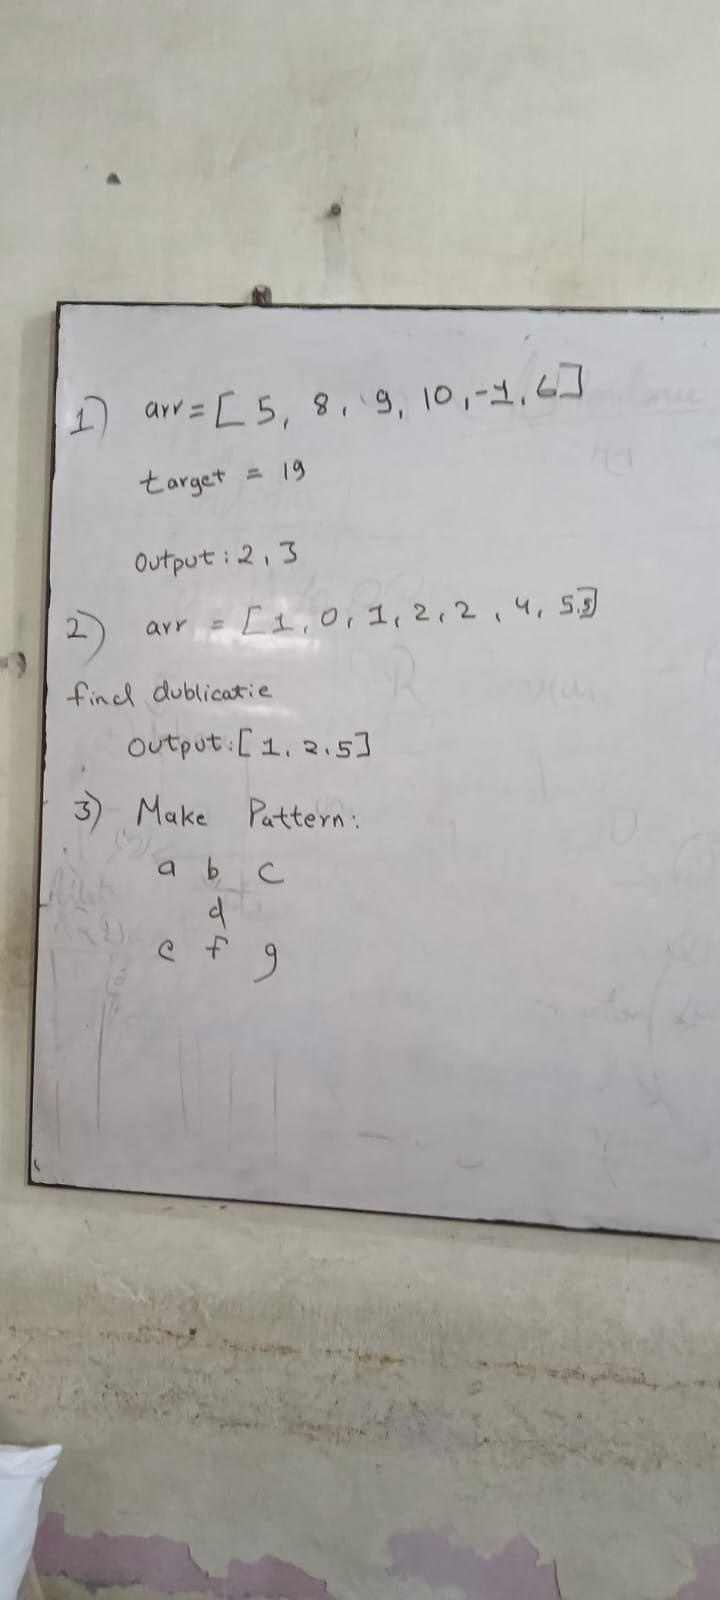 1) arr = [5, 8, 9, 10, -1, 6]
target = 19
Output: 2, 3
2) arr = [1, 0, 1, 2, 2, 4, 5,5]
find dublicatie
Output: [1, 2, 5]
3) Make Pattern:
a b c
d
e f g